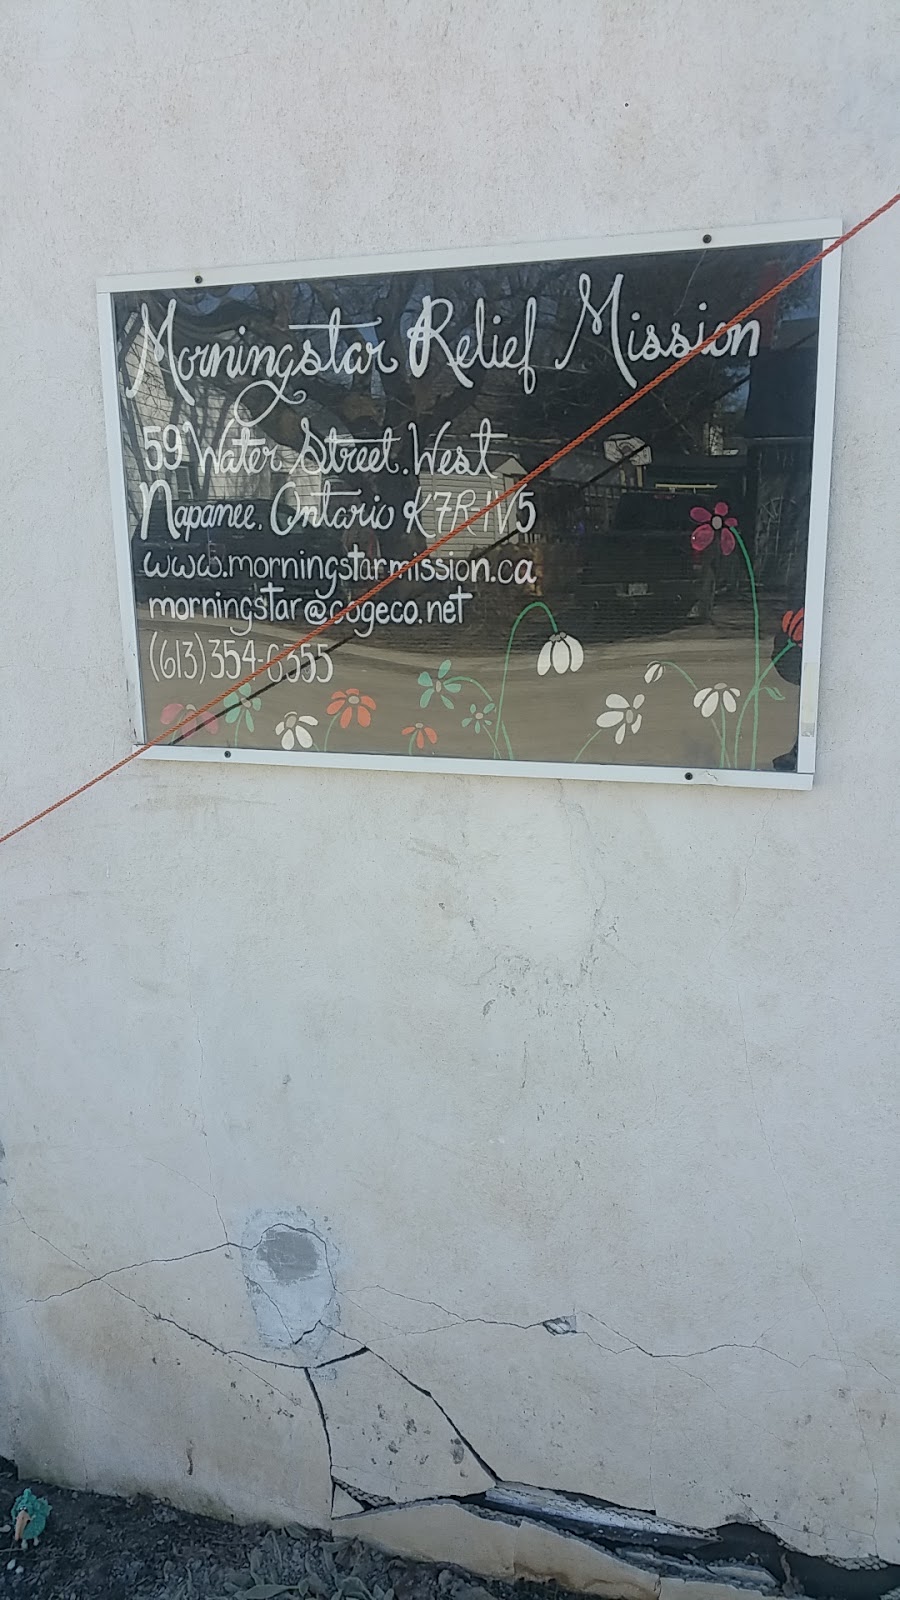 Morningstar Relief Mission
59 Water Street. West
Napanee, Ontario K7R-1V5
www.morningstarmission.ca
morningstar@cogeco.net
(613)354-6355